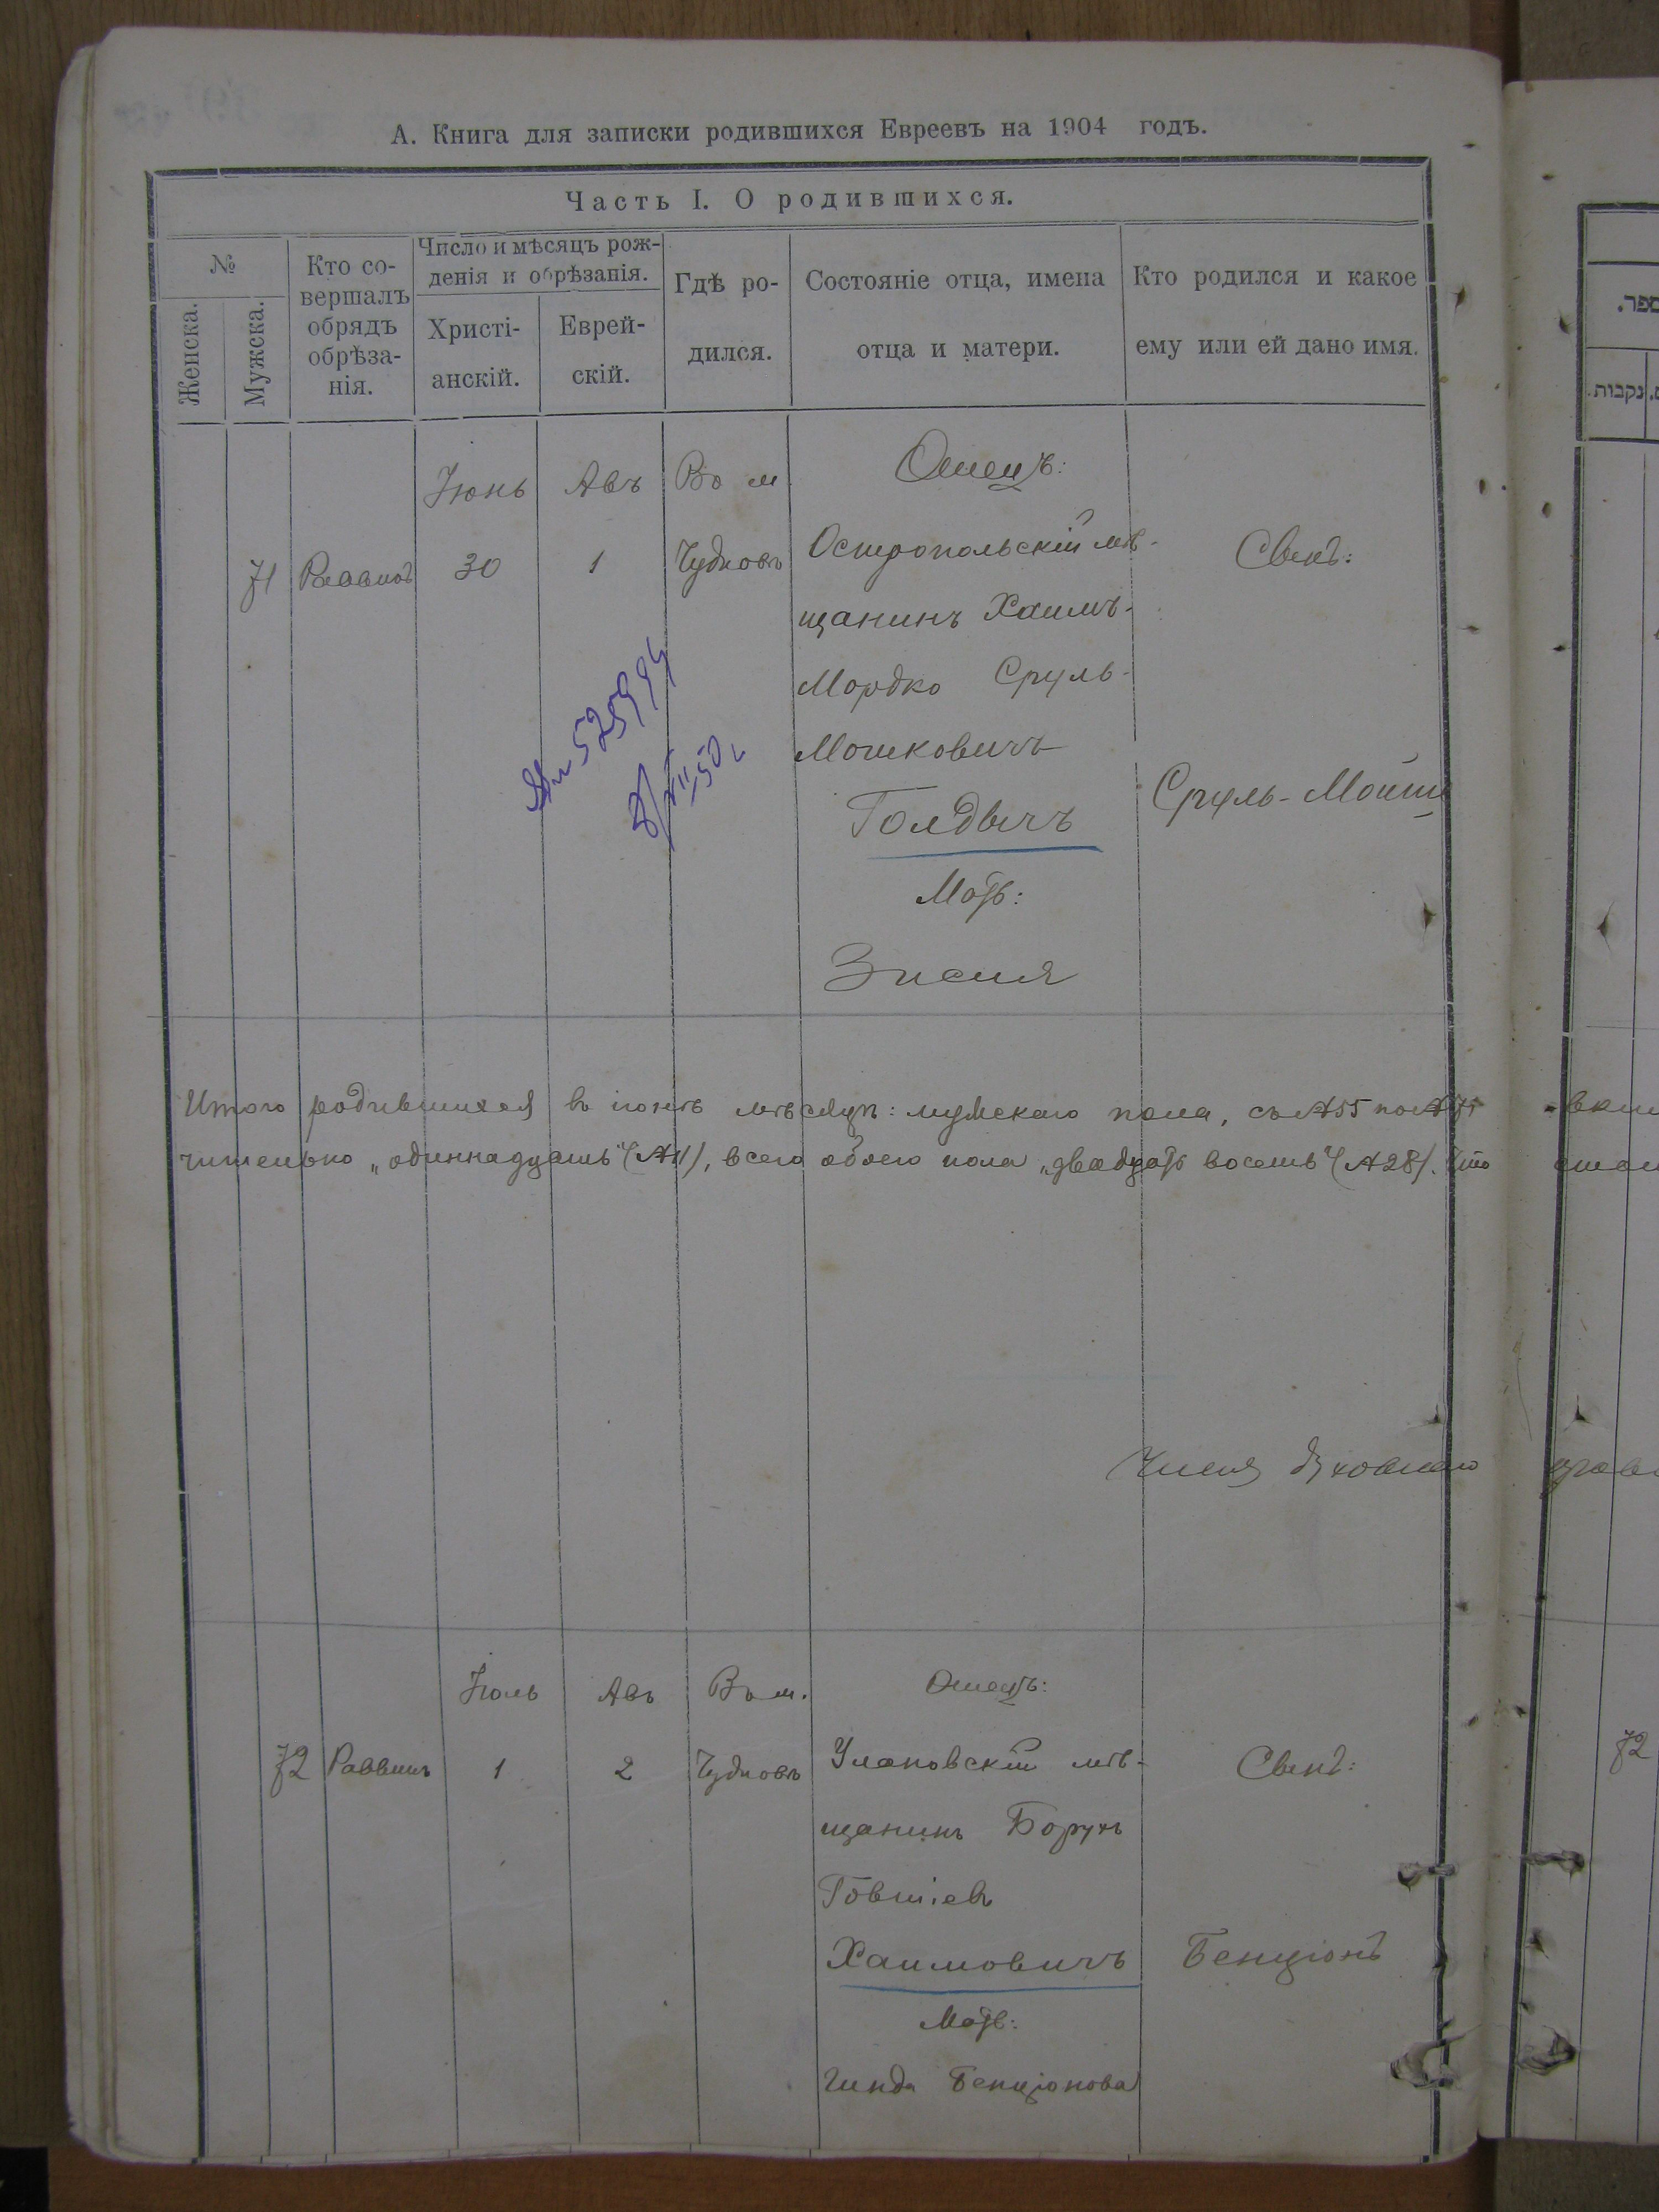 А. Книга для записки родившихся Евреевъ на 1904 годъ.
Часть I. О родившихся.
№
Женска.
Мужска.
Кто со-
вершалъ
обрядъ
обрѣза-
нія.
Число и мѣсяцъ рож-
денія и обрѣзанія.
Христі-
анскій.
Еврей-
скій.
Гдѣ ро-
дился.
Состояніе отца, имена
отца и матери.
Кто родился и какое
ему или ей дано имя.
Іюнь Авъ Въ м.
71 Раввинъ 30 1 Чудновъ
Отецъ:
Остропольскій мѣ-
щанинъ Хаимъ-
Мордко Сруль-
Мошковичъ
Голдычъ
Мать:
Зисля
Сынъ:
Сруль-Мойше
52594
Итого родившихся въ іюнѣ мѣсяцѣ: мужскаго пола, съ №55 по №71
чительно „одиннадцать“ (№11), всего обоего пола „двадцать восемь“ (№28). Что
Члены духовнаго
Іюль Авъ Въ м.
72 Раввинъ 1 2 Чудновъ
Отецъ:
Улановскій мѣ-
щанинъ Борухъ
Говшіевъ
Хаимовичъ
Мать:
Гинда Бенціонова
Сынъ:
Бенціонъ
ספר.
נקבות.
72